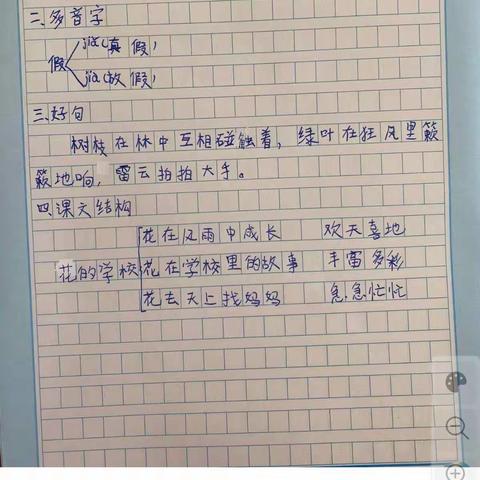 二、多音字
假
jiǎ(真假)
jià(放假)
三、好句
树枝在林中互相碰触着，绿叶在狂风里簌
簌地响，雷云拍拍大手。
四、课文结构
花在风雨中成长 欢天喜地
花的学校 花在学校里的故事 丰富多彩
花去天上找妈妈 急急忙忙